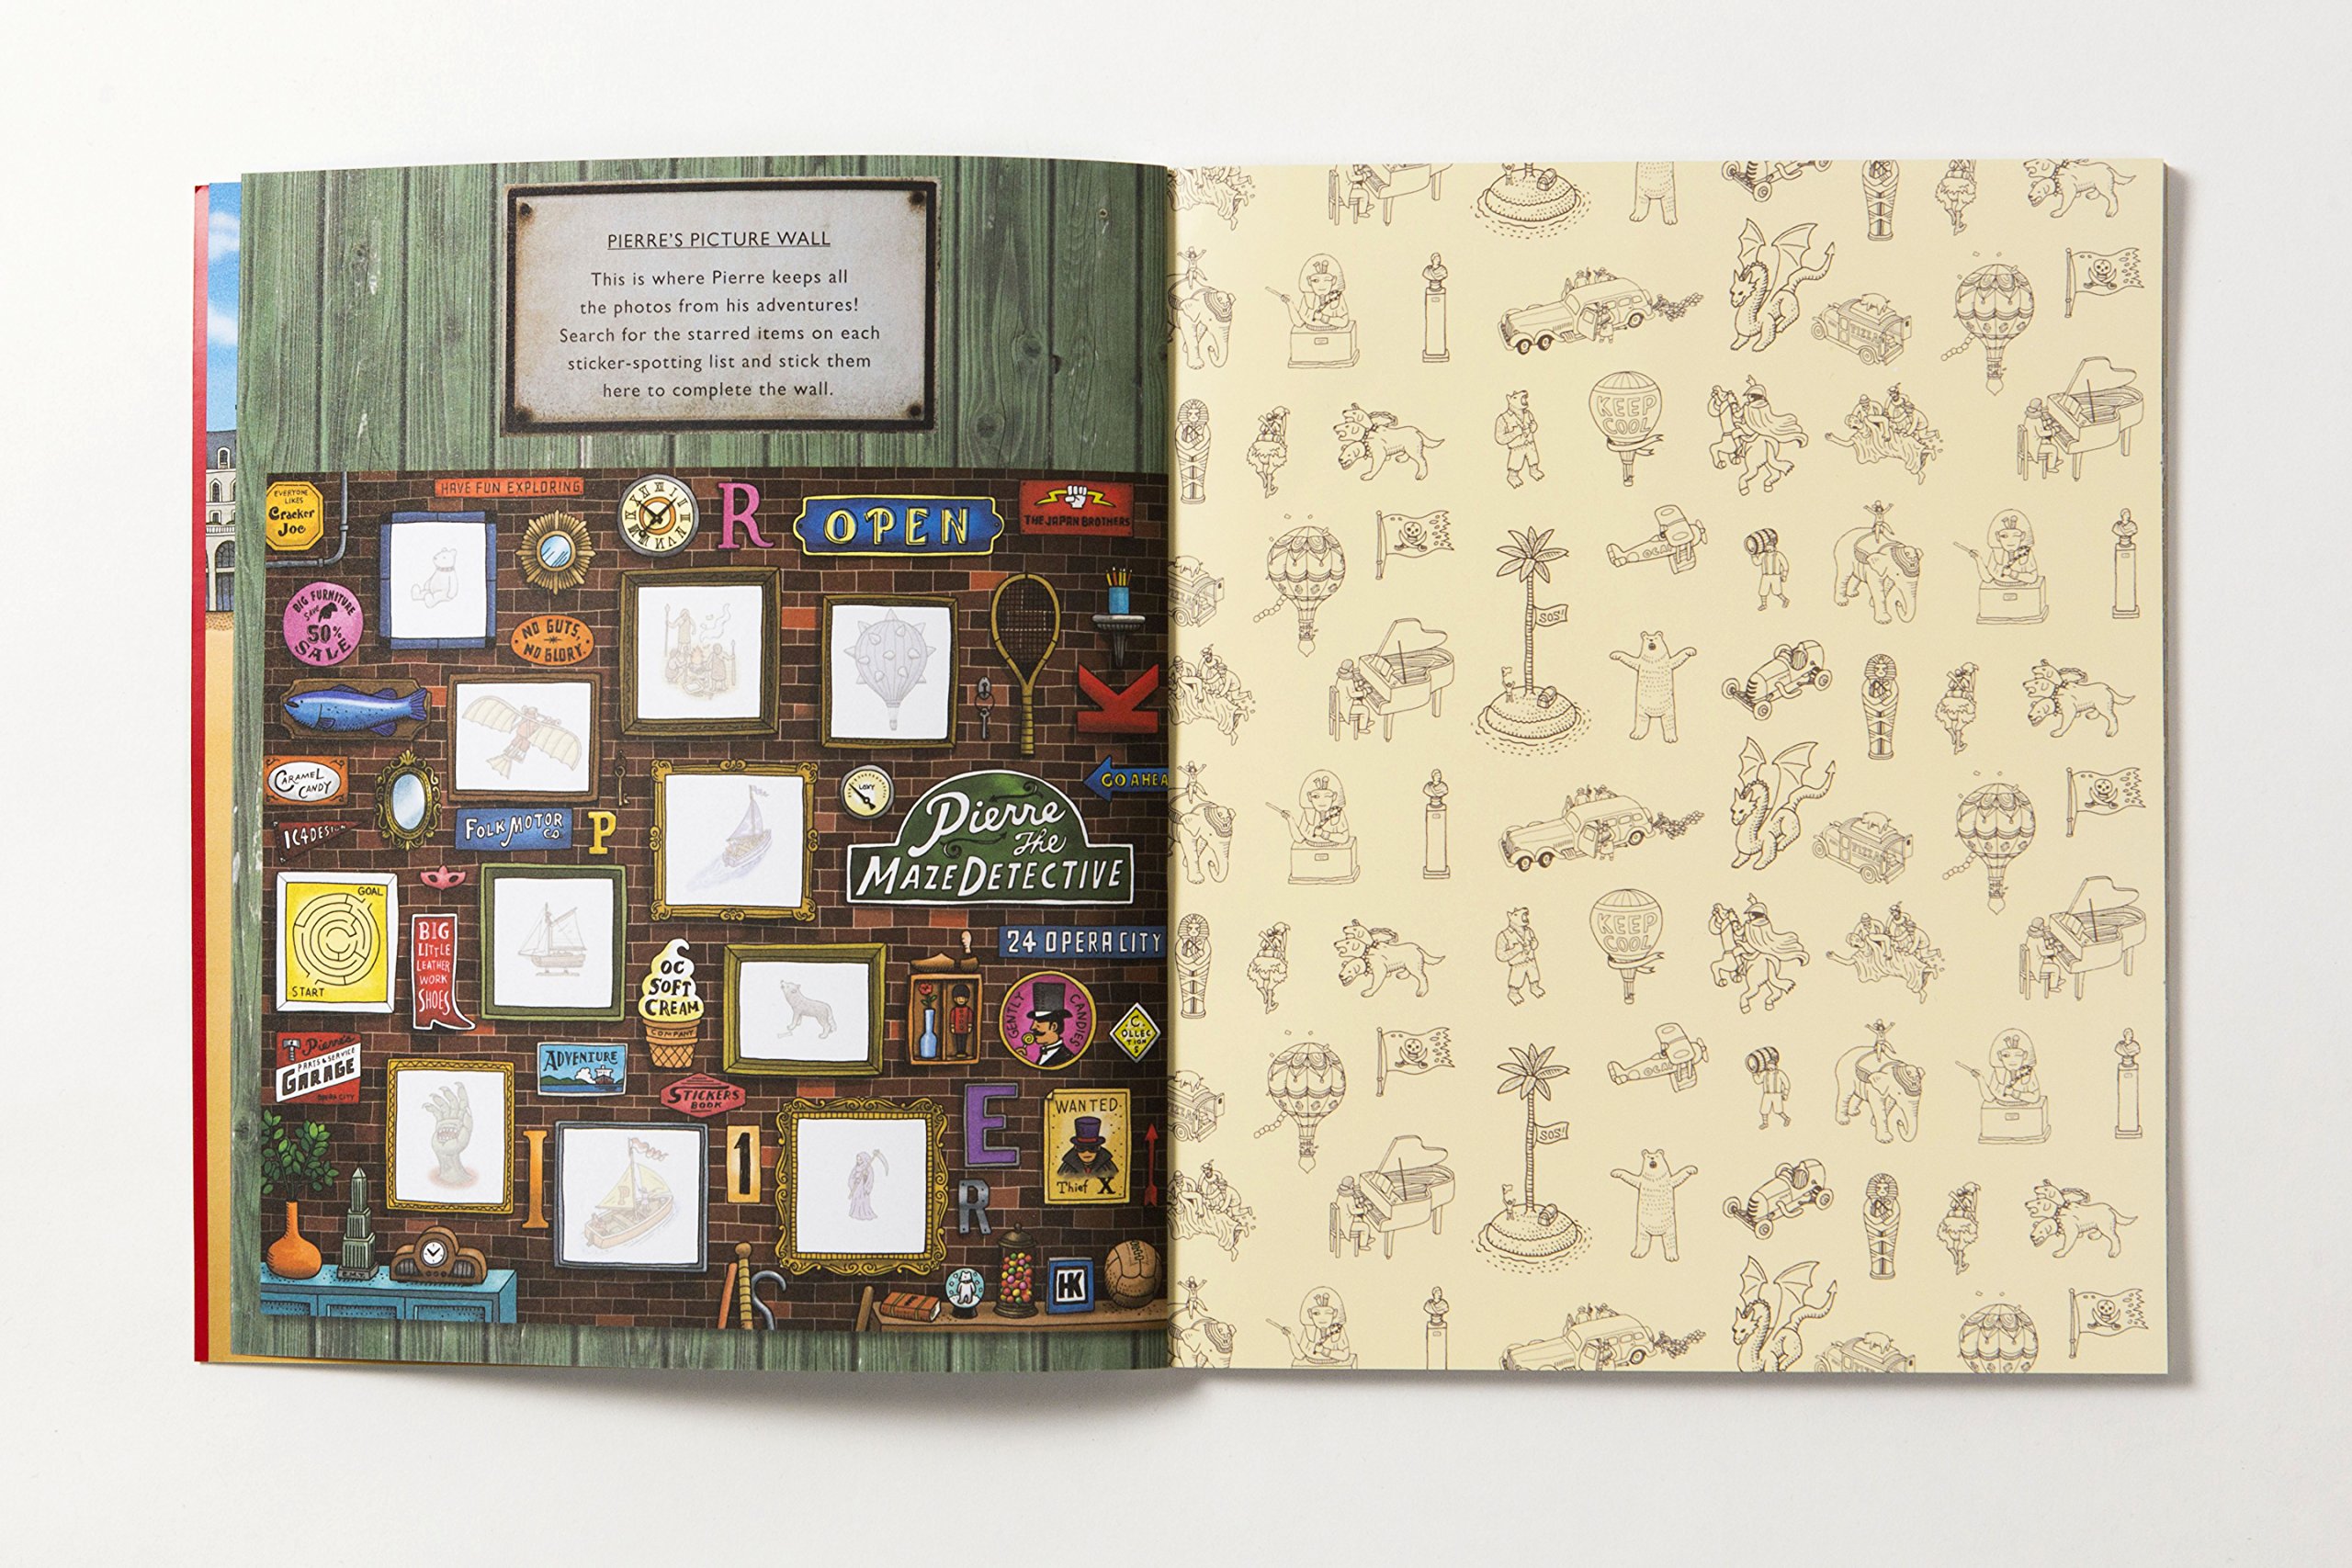 PIERRE'S PICTURE WALL
This is where Pierre keeps all
the photos from his adventures!
Search for the starred items on each
sticker-spotting list and stick them
here to complete the wall.
EVERYONE
LIKES
Cracker
Joe
HAVE FUN EXPLORING
R
OPEN
THE JAPAN BROTHERS
BIG FURNITURE
SAVE
50%
SALE
NO GUTS,
NO GLORY.
K
CARAMEL
CANDY
LOXY
GO AHEA
Pierre
The
MAZE DETECTIVE
IC4DESI
FOLK MOTOR
CO
P
GOAL
START
BIG
LITTLE
LEATHER
WORK
SHOES
OC
SOFT
CREAM
COMPANY
24 OPERA CITY
GENTLY
CANDIES
C.
OLLEC
TION
S
Pierre's
PARTS & SERVICE
GARAGE
OPERA CITY
ADVENTURE
STICKERS
BOOK
E
WANTED
Thief X
I
P
1
R
E.N.Y.
HK
KEEP
COOL
SOS!
KEEP
COOL
SOS!